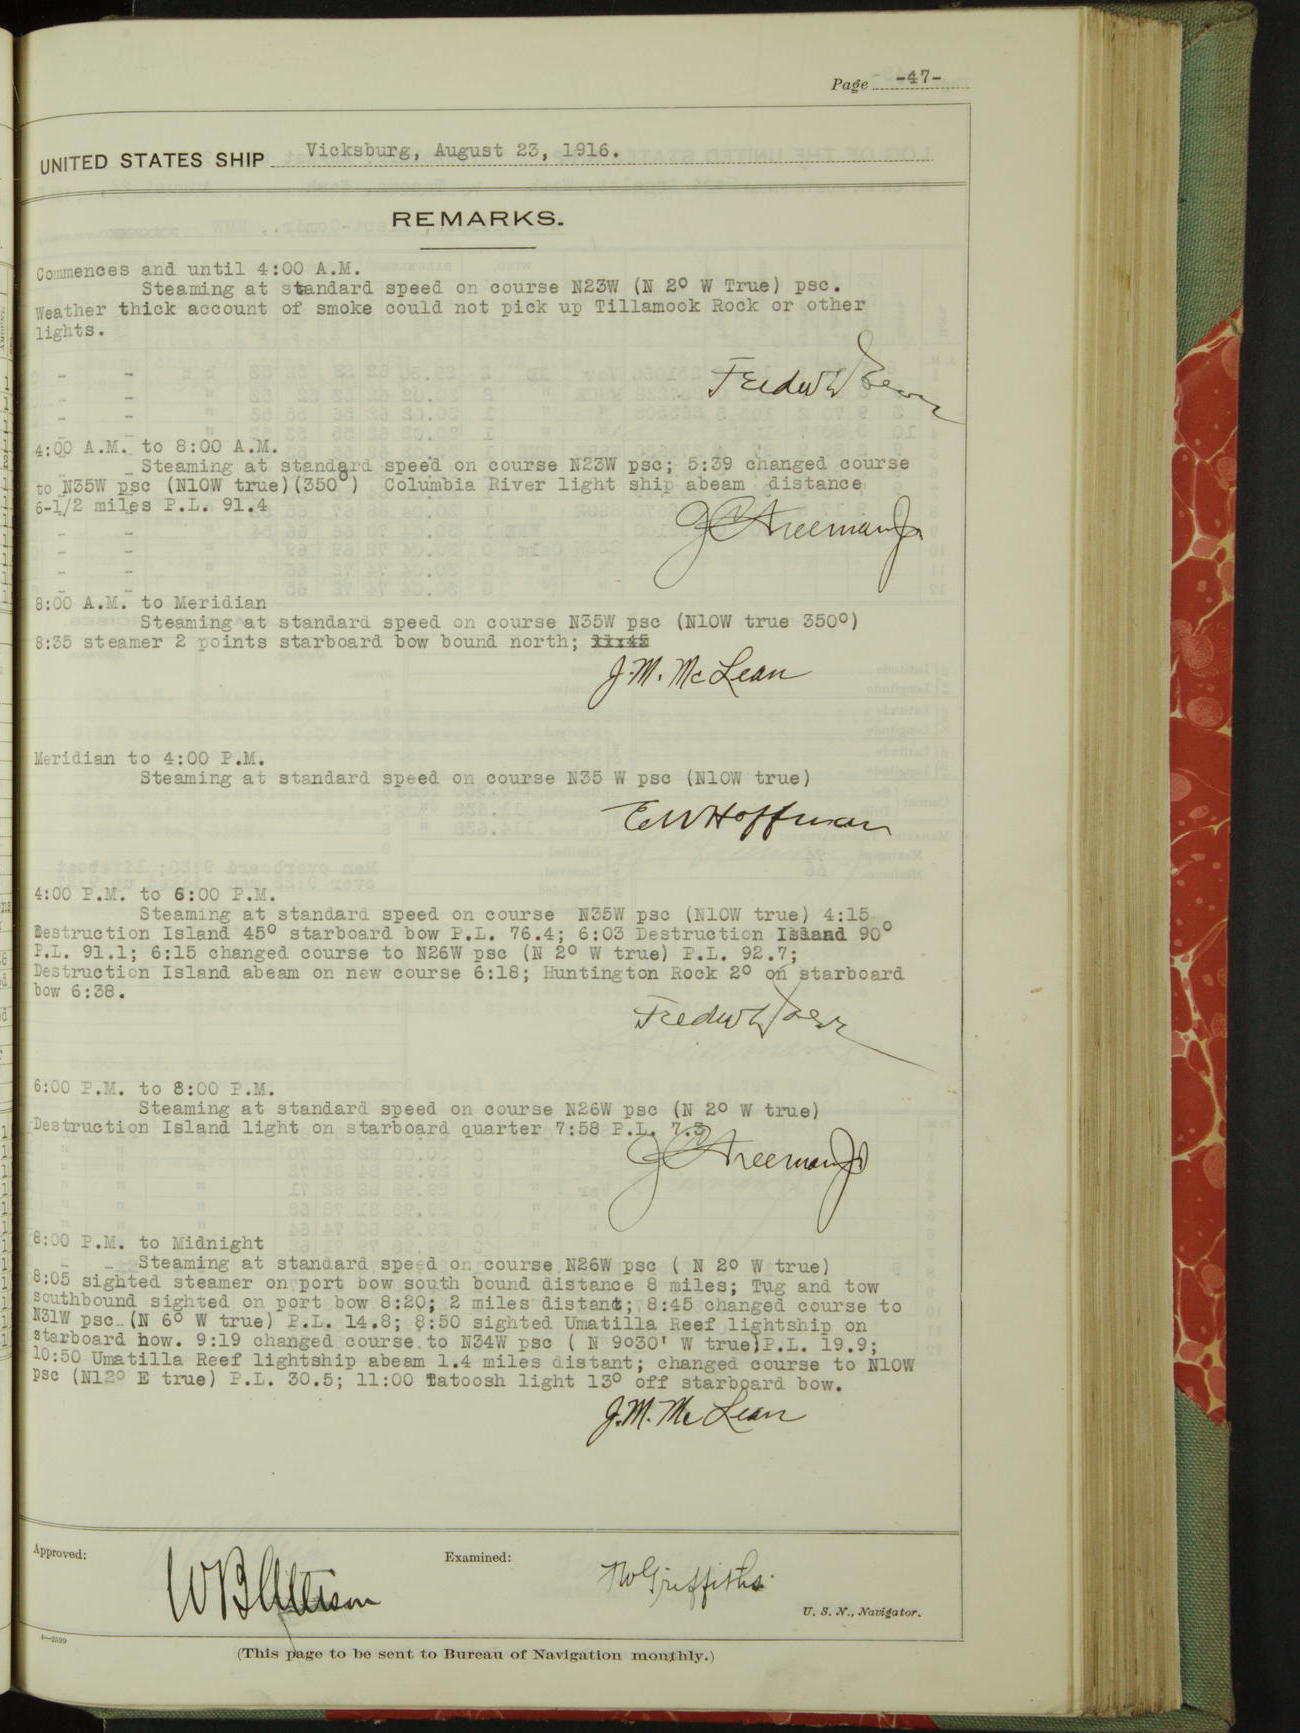 Page -47-
UNITED STATES SHIP Vicksburg, August 23, 1916.
REMARKS.
Commences and until 4:00 A.M.
Steaming at standard speed on course N23W (N 2º W True) psc.
Weather thick account of smoke could not pick up Tillamook Rock or other
lights.
4:00 A.M. to 8:00 A.M.
Steaming at standard speed on course N23W psc; 5:39 changed course
to N35W psc (N10W true)(350º) Columbia River light ship abeam distance
6-1/2 miles P.L. 91.4
J C Freeman Jr
8:00 A.M. to Meridian
Steaming at standard speed on course N35W psc (N10W true 350º)
8:35 steamer 2 points starboard bow bound north;
J. M. McLean
Meridian to 4:00 P.M.
Steaming at standard speed on course N35 W psc (N10W true)
E W Hoffman
4:00 P.M. to 6:00 P.M.
Steaming at standard speed on course N35W psc (N10W true) 4:15
Destruction Island 45º starboard bow P.L. 76.4; 6:03 Destruction Island 90º
P.L. 91.1; 6:15 changed course to N26W psc (N 2º W true) P.L. 92.7;
Destruction Island abeam on new course 6:18; Huntington Rock 2º on starboard
bow 6:38.
6:00 P.M. to 8:00 P.M.
Steaming at standard speed on course N26W psc (N 2º W true)
Destruction Island light on starboard quarter 7:58 P.L. 7.3
J C Freeman Jr
8:00 P.M. to Midnight
Steaming at standard speed on course N26W psc ( N 2º W true)
8:05 sighted steamer on port bow south bound distance 8 miles; Tug and tow
southbound sighted on port bow 8:20; 2 miles distant; 8:45 changed course to
N31W psc (N 6º W true) P.L. 14.8; 8:50 sighted Umatilla Reef lightship on
starboard how. 9:19 changed course to N34W psc ( N 9º30' W true)P.L. 19.9;
10:50 Umatilla Reef lightship abeam 1.4 miles distant; changed course to N10W
psc (N12º E true) P.L. 30.5; 11:00 Tatoosh light 13º off starboard bow.
J. M. McLean
Approved:
Examined:
Griffiths
U. S. N., Navigator.
(This page to be sent to Bureau of Navigation monthly.)